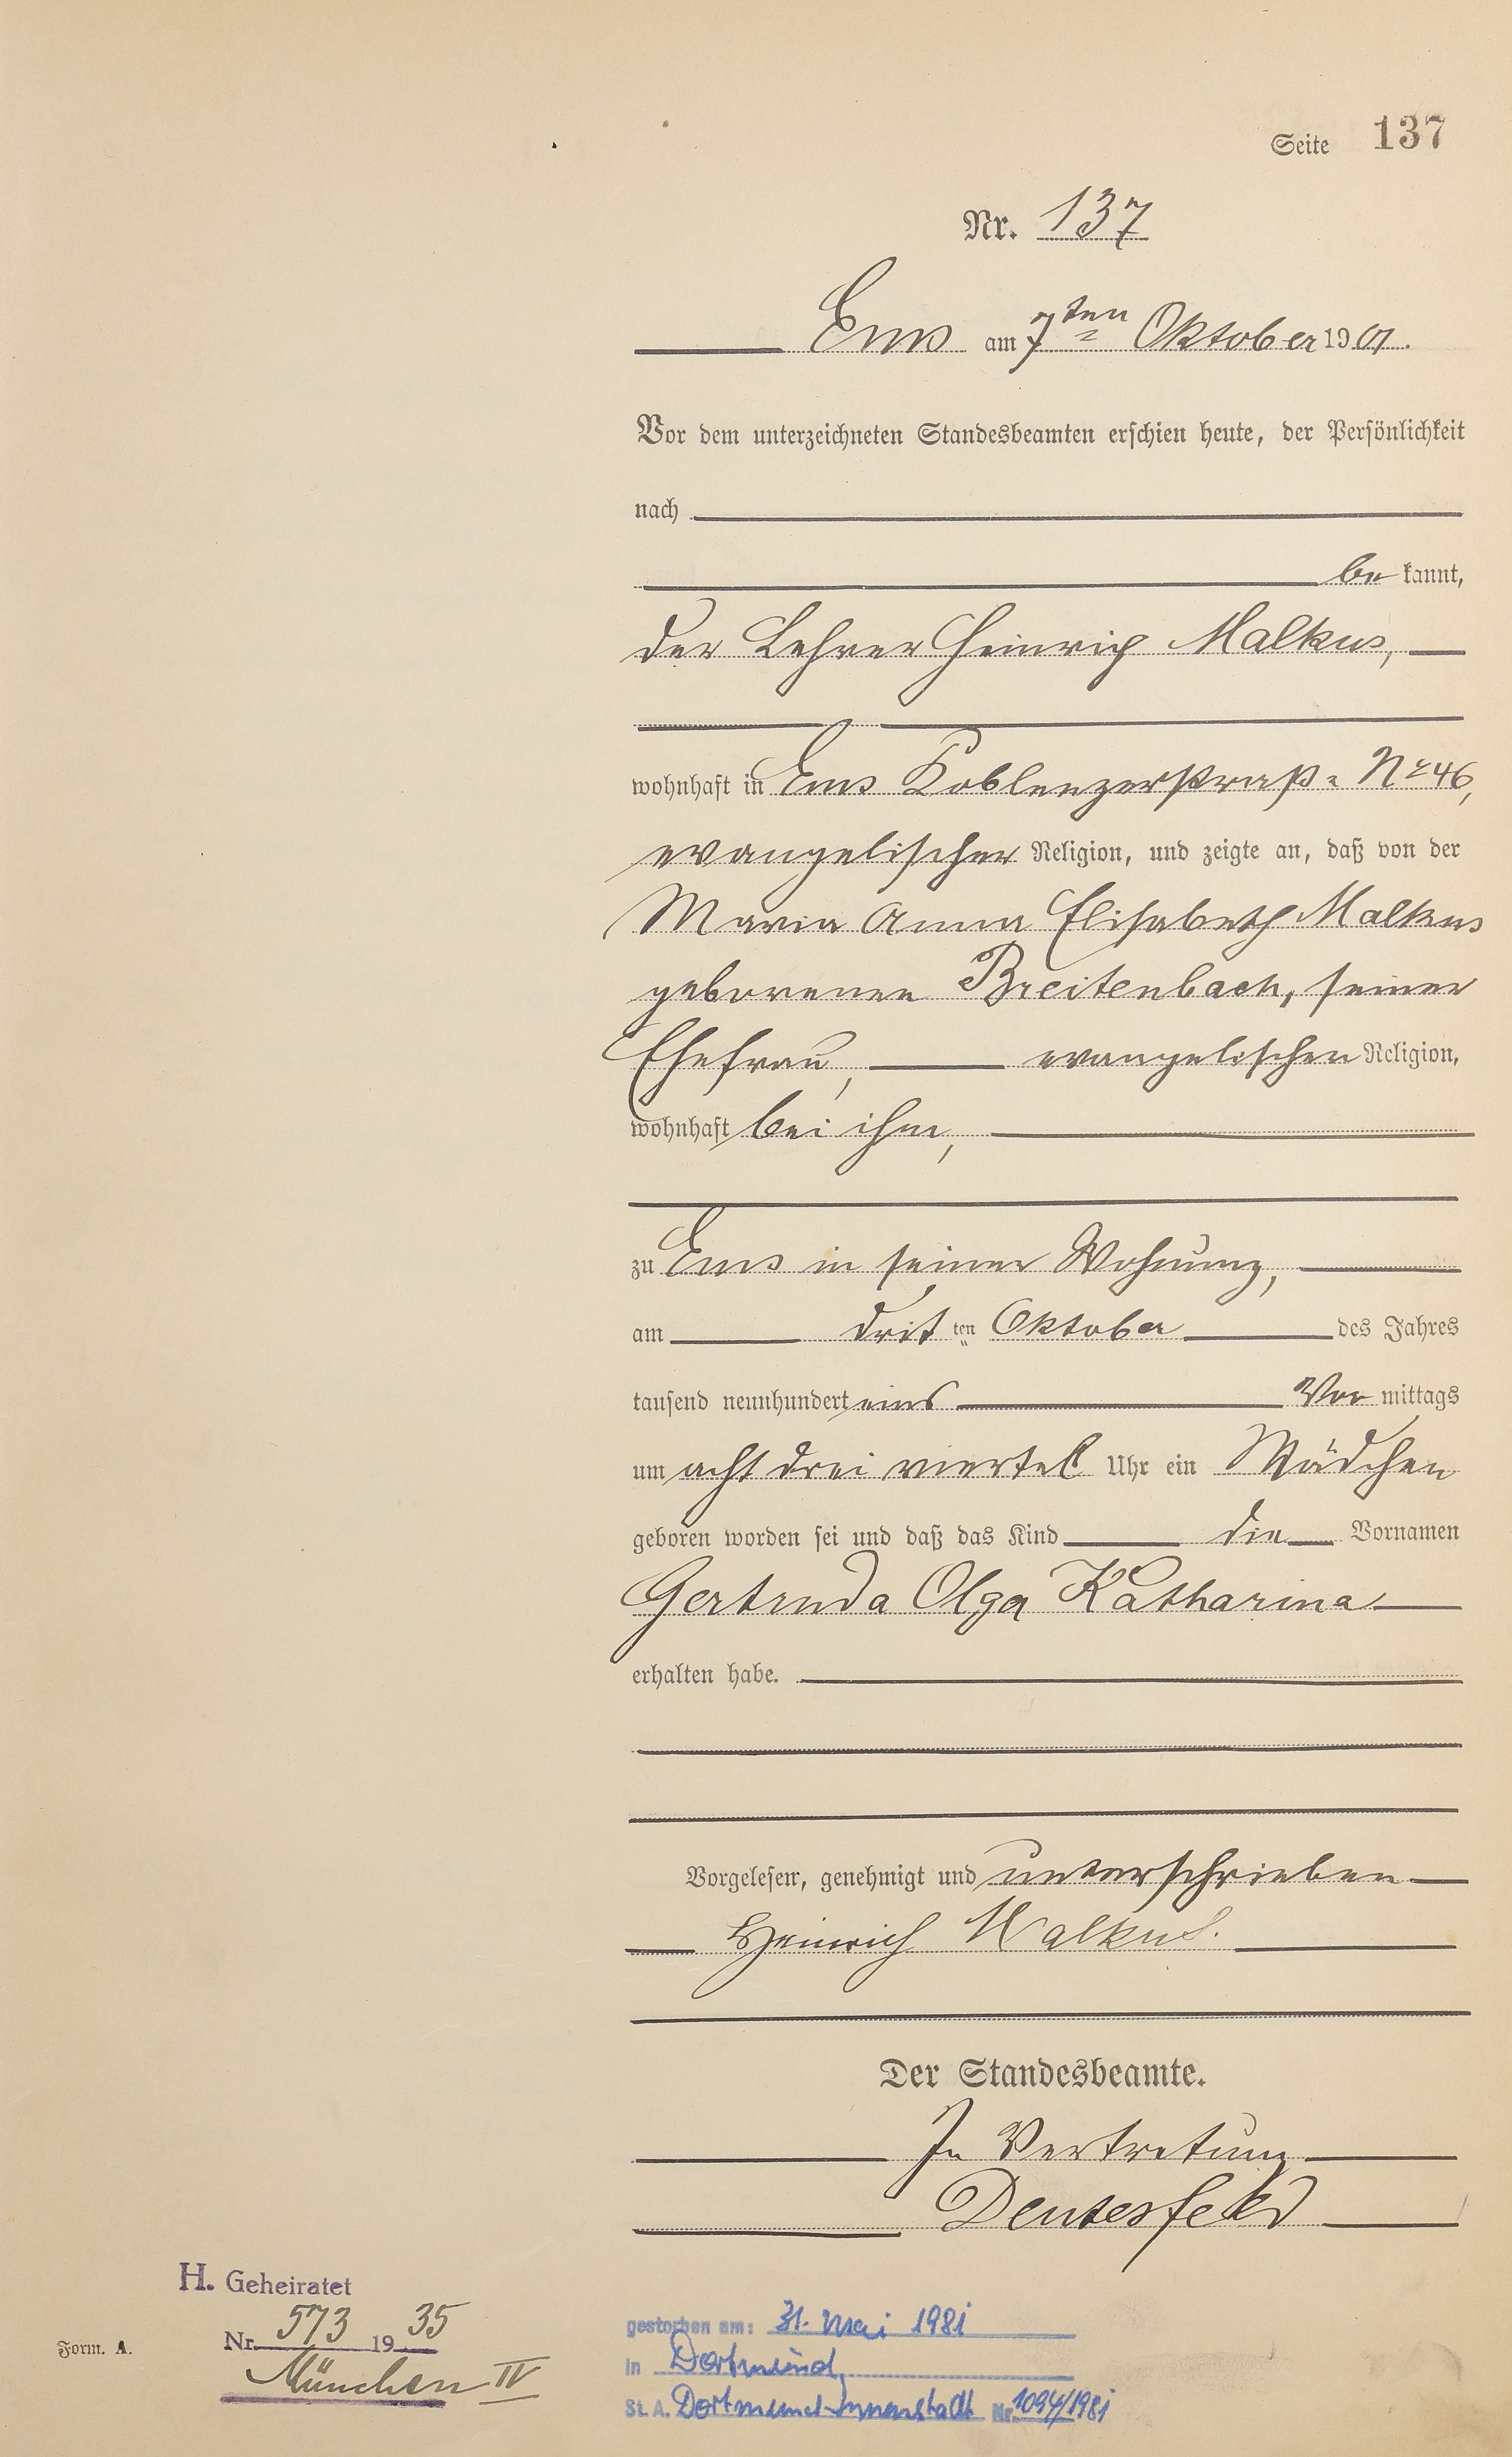 Seite 137
Nr. 137
Ems am 7ten Oktober 1901.
Vor dem unterzeichneten Standesbeamten erschien heute, der Persönlichkeit
nach
be kannt,
der Lehrer Heinrich Malkus,
wohnhaft in Ems Koblenzerstraße Nr 46,
evangelischer Religion, und zeigte an, daß von der
Maria Anna Elisabeth Malkus
geborenen Breitenbach, seiner
Ehefrau, evangelischen Religion,
wohnhaft bei ihm,
zu Ems in seiner Wohnung,
am drit ten Oktober des Jahres
tausend neunhundert eins Vor mittags
um acht drei viertel Uhr ein Mädchen
geboren worden sei und daß das Kind die Vornamen
Gertruda Olga Katharina
erhalten habe.
Vorgelesen, genehmigt und unterschrieben
Heinrich Malkus.
Der Standesbeamte.
In Vertretung
Deutesfeld
H. Geheiratet
Nr. 573 1935
München IV
Form. A.
gestorben am: 31. Mai 1981
in Dortmund
St. A. Dortmund-Innenstadt Nr. 1094/1981